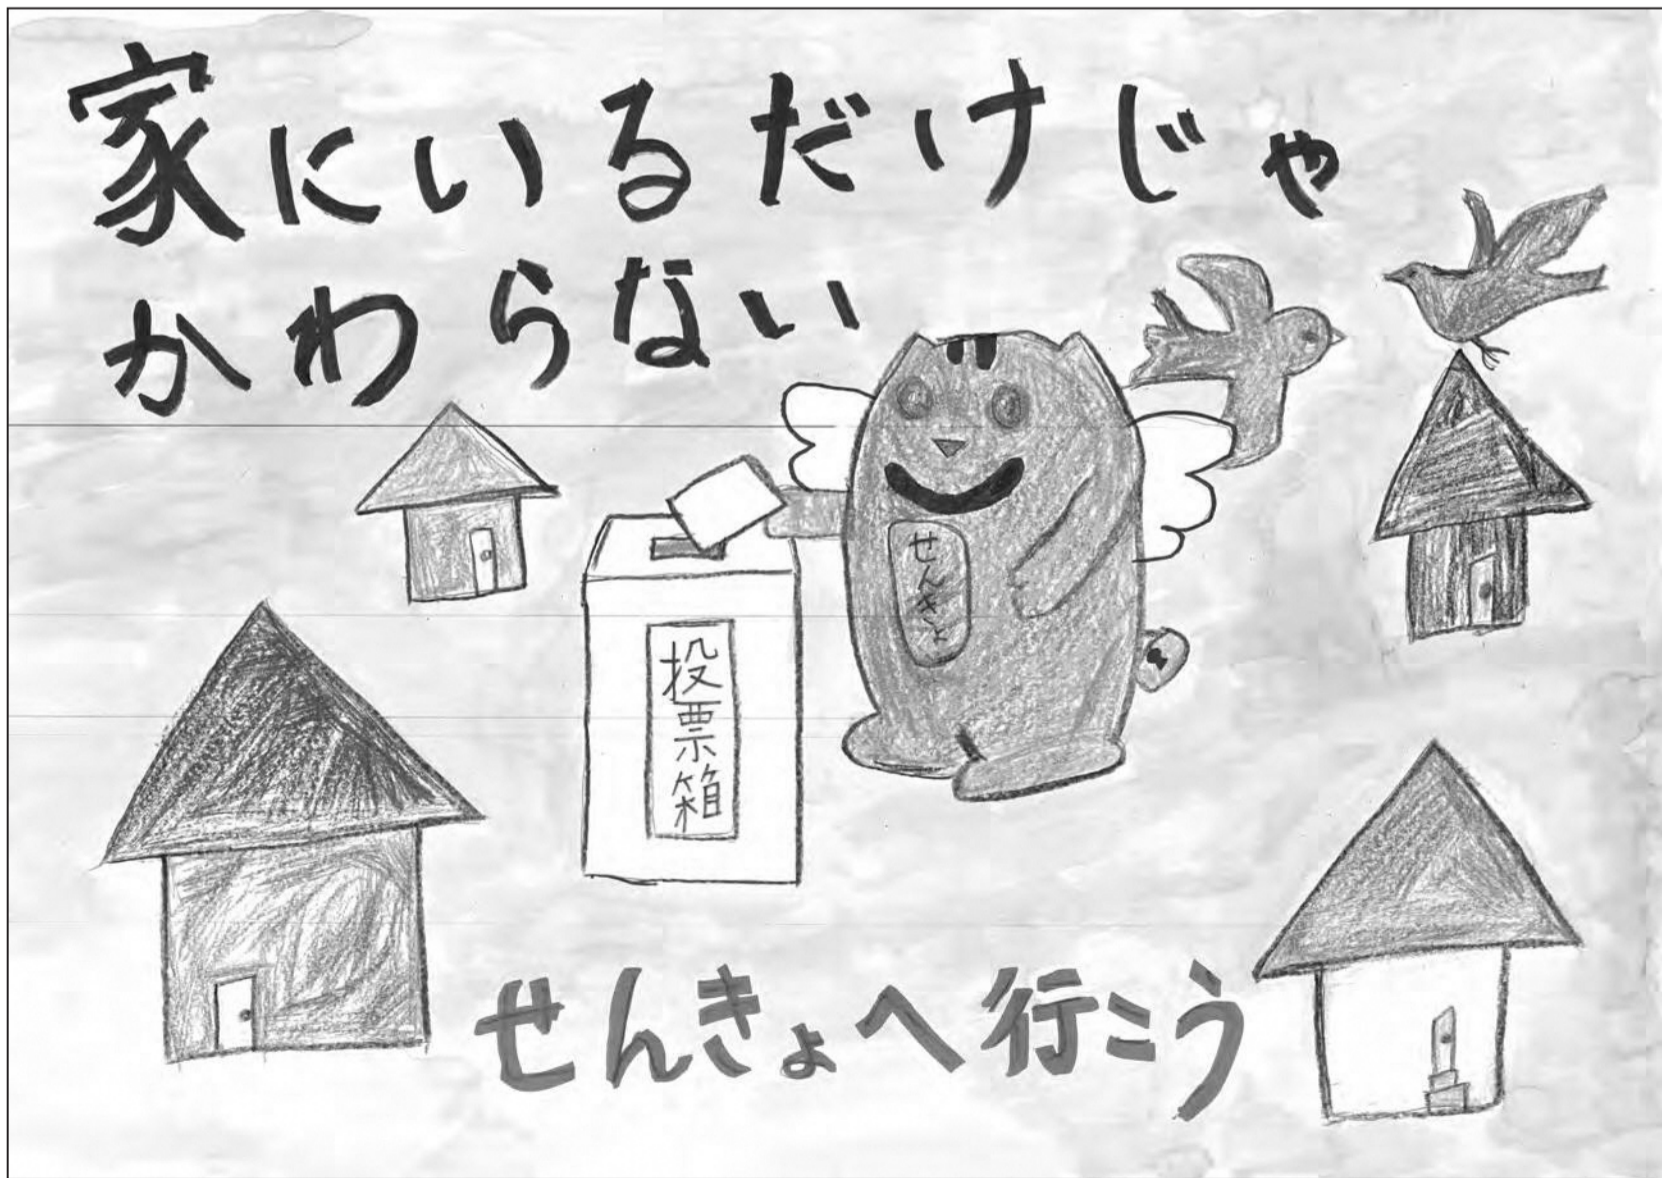 家にいるだけじゃ
かわらない
せんきょ
投票箱
せんきょへ行こう